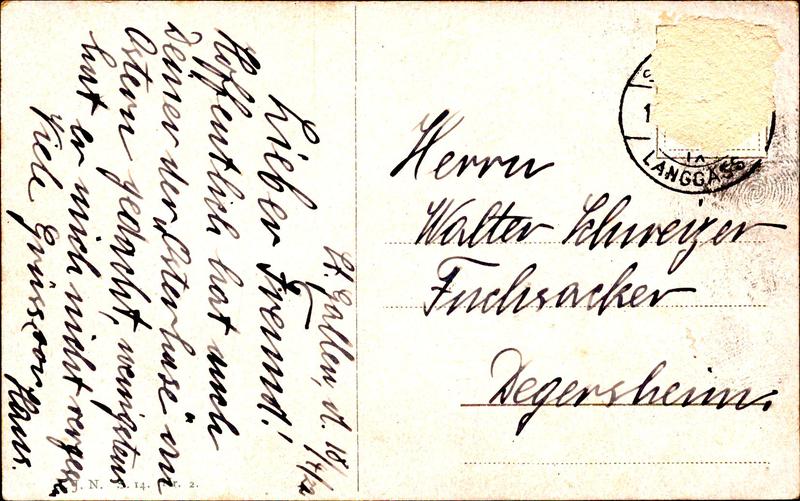 St. Gallen, d. 18/4/
Lieber Freund!
Hoffentlich hat auch
Deiner der Osterhase im
Ostern gedacht, wenigstens
hat er mich nicht vergessen
Viele Grüsse von
Hans.
Herrn
Walter Schweizer
Fuchsacker
Degersheim.
LANGGASS
J. N. S. 14. Nr. 2.